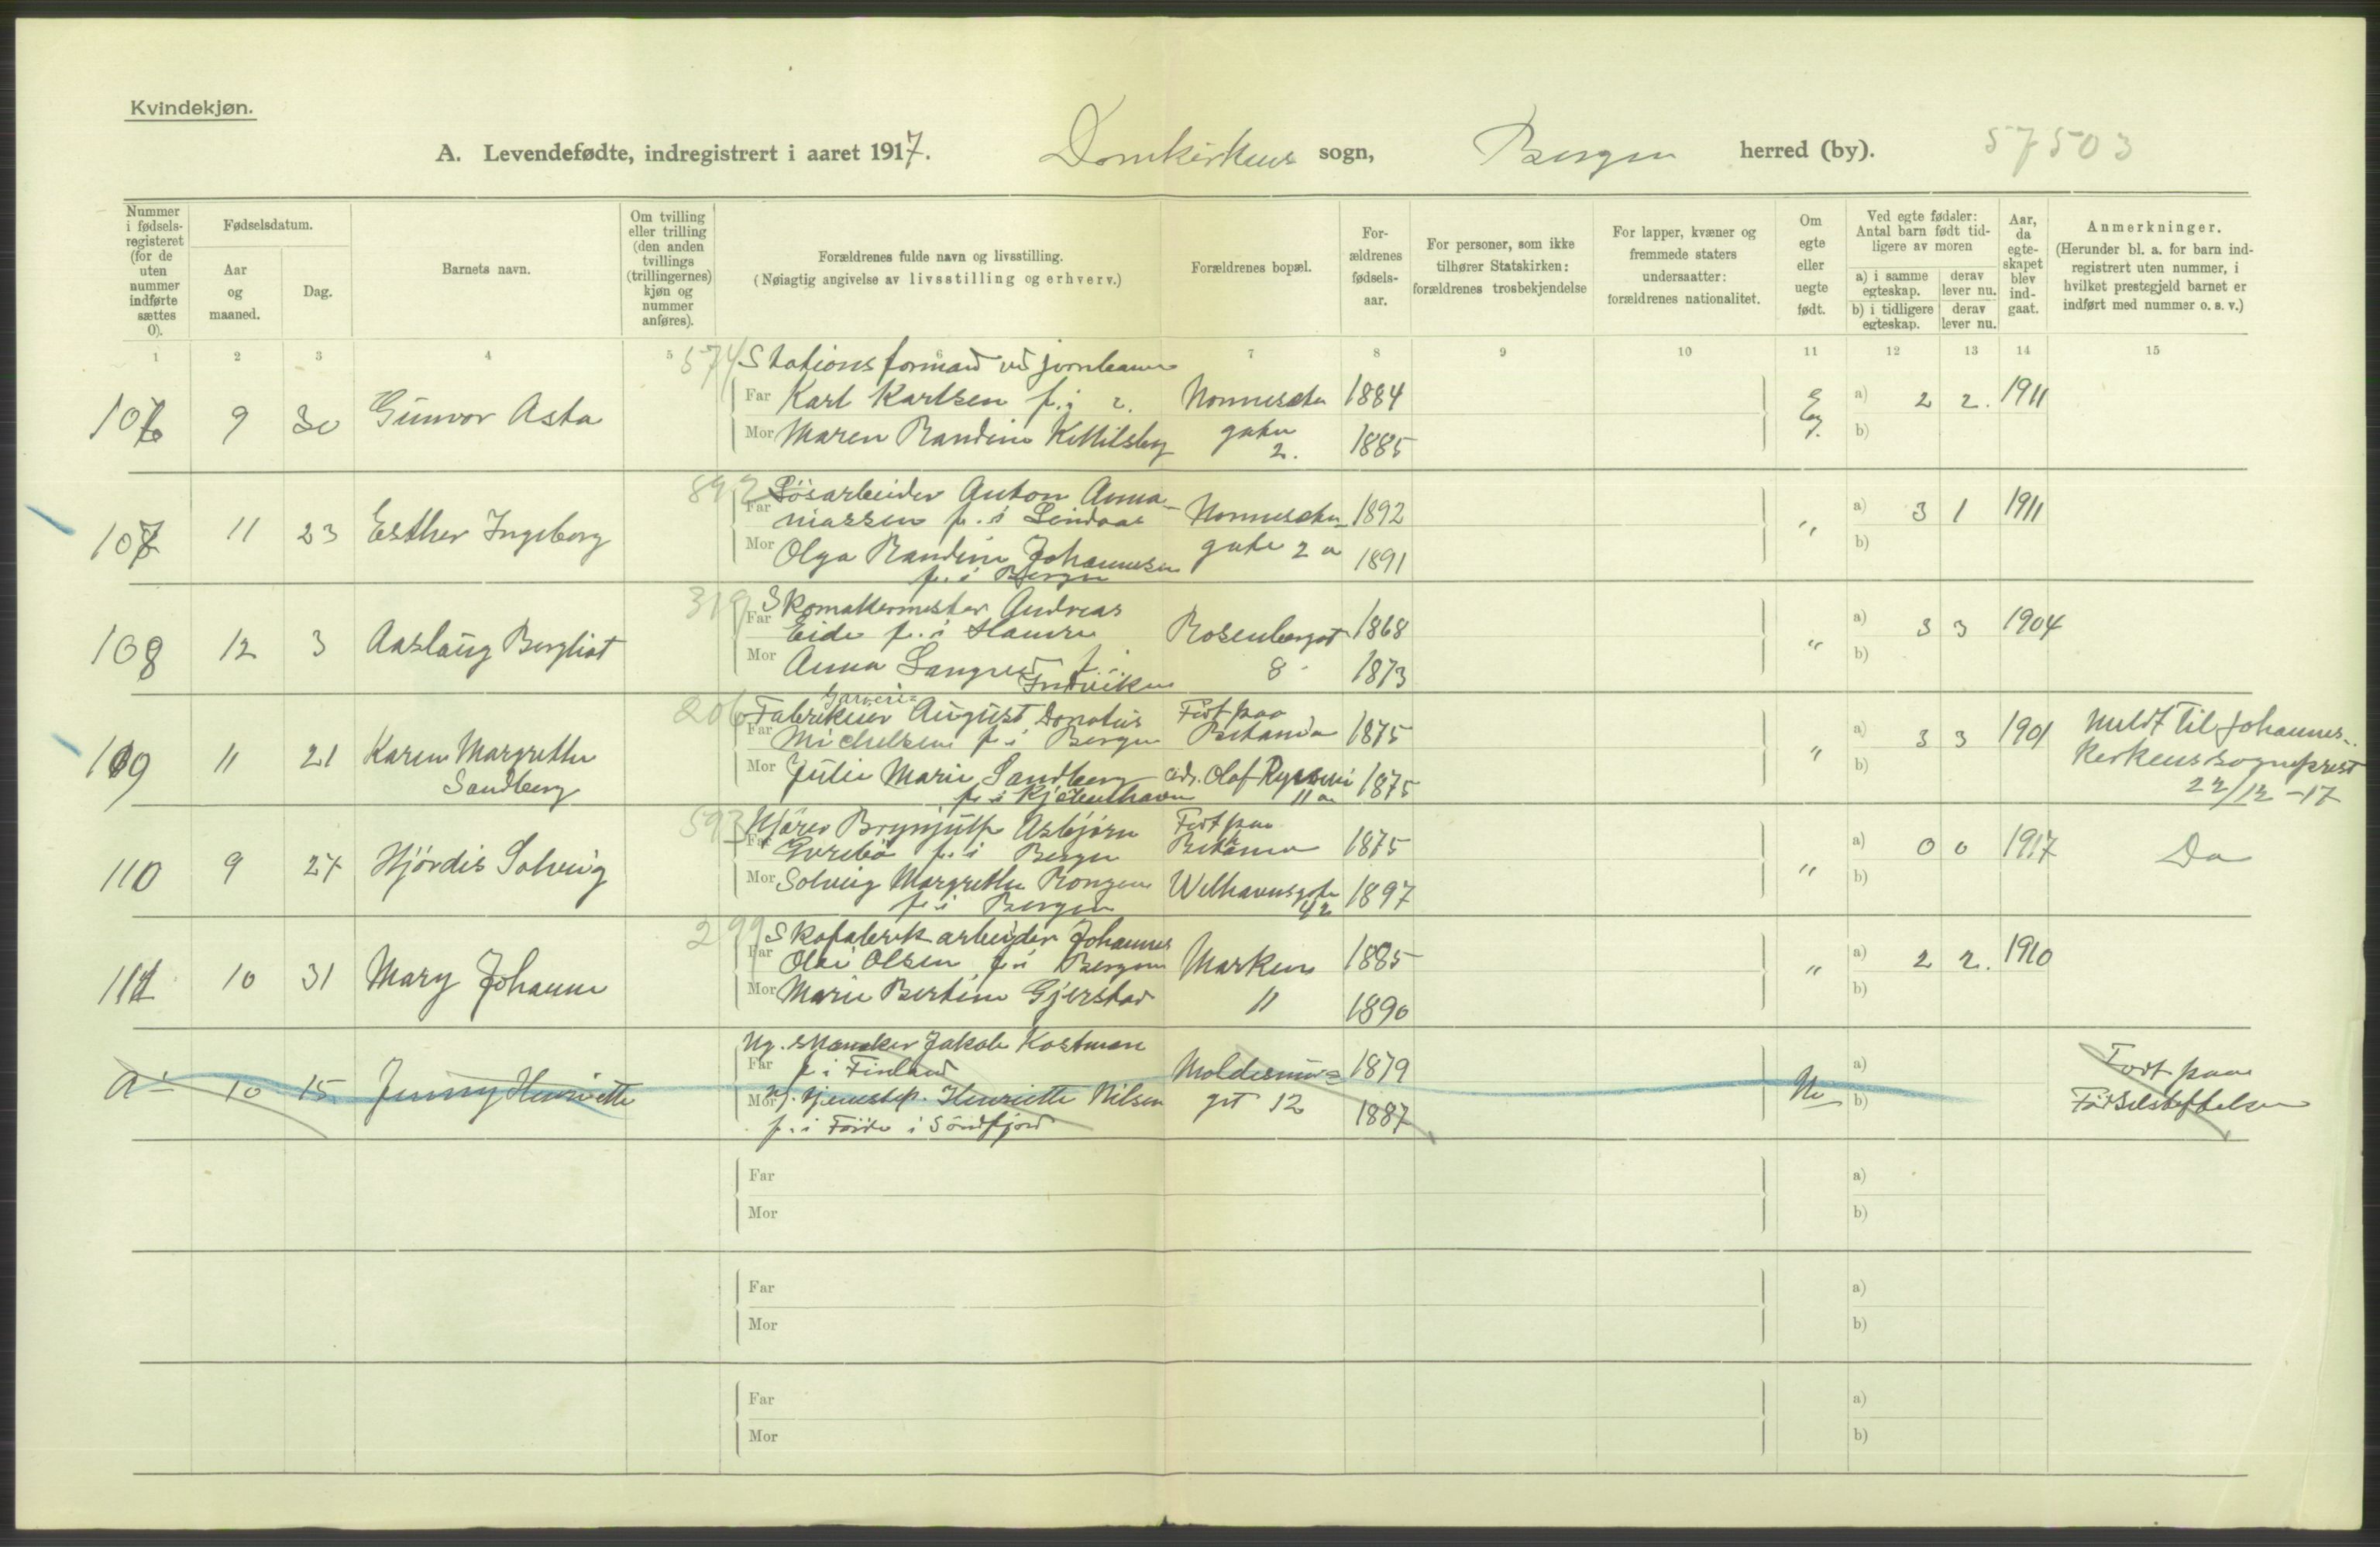 Kvindekjøn.
A. Levendefødte, indregistrert i aaret 1917. Domkirkens sogn, Bergen herred (by). 57503
Nummer i fødsels-registeret (for de uten nummer indførte sættes 0).
Fødselsdatum.
Aar og maaned.
Dag.
Barnets navn.
Om tvilling eller trilling (den anden tvillings (trillingernes) kjøn og nummer anføres).
Forældrenes fulde navn og livsstilling.
(Nøiagtig angivelse av livsstilling og erhverv.)
Forældrenes bopæl.
For-ældrenes fødsels-aar.
For personer, som ikke tilhører Statskirken: forældrenes trosbekjendelse
For lapper, kvæner og fremmede staters undersaatter: forældrenes nationalitet.
Om egte eller uegte født.
Ved egte fødsler: Antal barn født tid-ligere av moren
a) i samme egteskap. derav lever nu.
b) i tidligere egteskap. derav lever nu.
Aar, da egte-skapet blev ind-gaat.
Anmerkninger.
(Herunder bl. a. for barn ind-registrert uten nummer, i hvilket prestegjeld barnet er indført med nummer o. s. v.)
1 2 3 4 5 6 7 8 9 10 11 12 13 14 15
574 Stationsformand ved jernbanen
106 9 30 Gunvor Asta Far Karl Karlsen f. i Nonneseter 1884 Eg. a) 2 2. 1911
Mor Maren Randine Kittilsby gaten 2. 1885 b)
892 Løsarbeider Anton Anna-
107 11 23 Esther Ingeborg Far niassen f. i Lindaas Nonneseter 1892 " a) 3 1 1911
Mor Olga Randine Johannesen gate 2 a 1891 b)
f. i Bergen
319 Skomakermester Andreas
108 12 3 Aaslaug Bergliot Far Eide f. i Hamre Rosenbergsgt 1868 " a) 3 3 1904
Mor Anna Langved f. i Indviken 8 1873 b)
Garveri-
206 Fabrikeier August Donatus Født paa
109 11 21 Karen Margrethe Sandberg Far Michelsen f. i Bergen Betania 1875 " a) 3 3 1901 Meldt til Johannes-
Mor Julie Marie Sandberg adr. Olaf Ryesvei 1875 b) kirkens sogneprest
f. i Kjøbenhavn 11 a 22/12 -17
593 Brynjulf Asbjørn Født paa
110 9 27 Hjördis Solveig Far f. i Bergen Betania 1875 " a) 0 0 1917 Do
Mor Solveig Margrethe Rongen Welhavensgate 1897 b)
f. i Bergen 42
299 Skofabrikarbeider Johannes
111 10 31 Mary Johanne Far Olai Olsen f. i Bergen Marken 1885 " a) 2 2. 1910
Mor Marie Bertine Gjerstad 11 1890 b)
Ug. Jakob Kastman
A 10 15 Jenny Henriette Far f. i Finland 1879 a) Født paa
Mor Ug. tjenestep. Henriette Nilsen gt 12 1887 b) Fødselsstiftelsen
f. i Förde i Söndfjord
Far a)
Mor b)
Far a)
Mor b)
Far a)
Mor b)